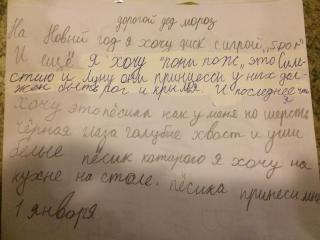 дорогой дед мороз
На Новый год я хочу диск с игрой „spor"
И ещё я хочу "пони попс", это Селе-
стию и Луну они принцессы у них дол-
жен быть рог и крылья. И последнее что
я
хочу это пёсика как у меня но шерсть
чёрная глаза голубые хвост и уши
белые пёсик которого я хочу на
кухне на столе. пёсика принеси мне
1 января